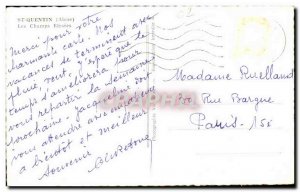 ST-QUENTIN (Aisne)
Les Champs Elysées
Merci pour votre
charmante carte. Nos
vacances se terminent avec
pluie, vent, j'espère que le
temps s'améliorera pour
vous repartir la semaine
prochaine. Jacqueline doit
vous attendre avec
à bientôt et meilleur
Souvenir
Madame Ruelland
Rue Bargue
Paris - 15e